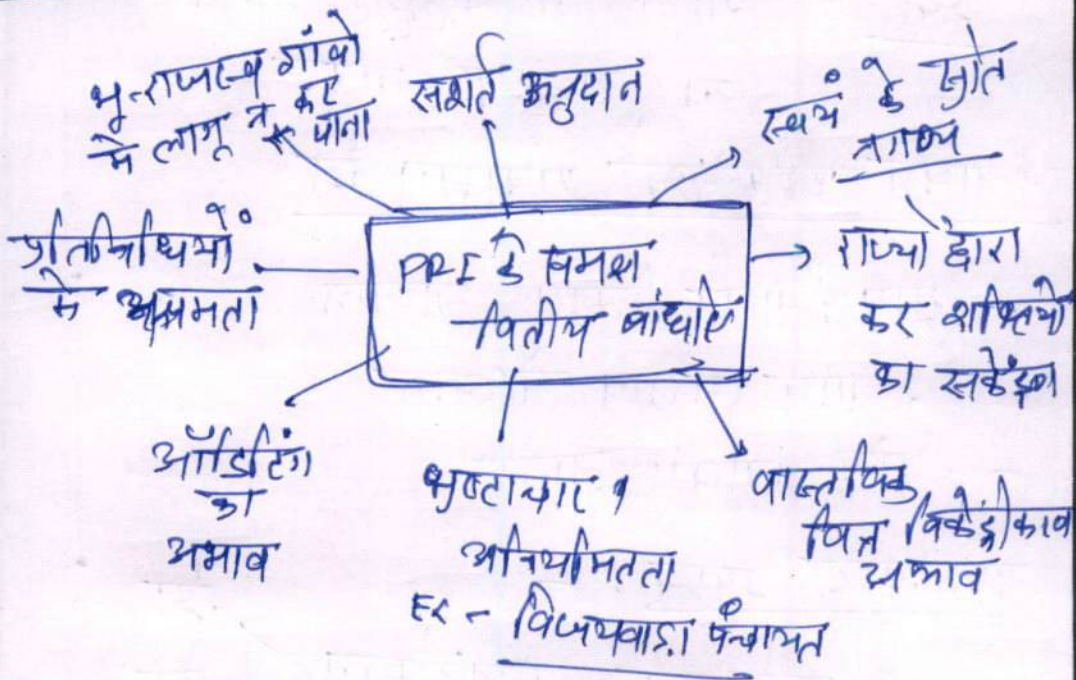 भू-राजस्व गांवो
मे लागू न कर
पाना
सशर्त अनुदान
स्वयं के स्रोत
नगण्य
प्रतिनिधियों
मे अक्षमता
PRI के समक्ष
वित्तीय बांधाएं
राज्यो द्वारा
कर शक्तियो
का सकेंद्रण
ऑडिटिंग
का
अभाव
भ्रष्टाचार व
अनियमितता
Ex - विजयवाड़ा पंचायत
वास्तविक
वित्त विकेंद्रीकरण
अभाव